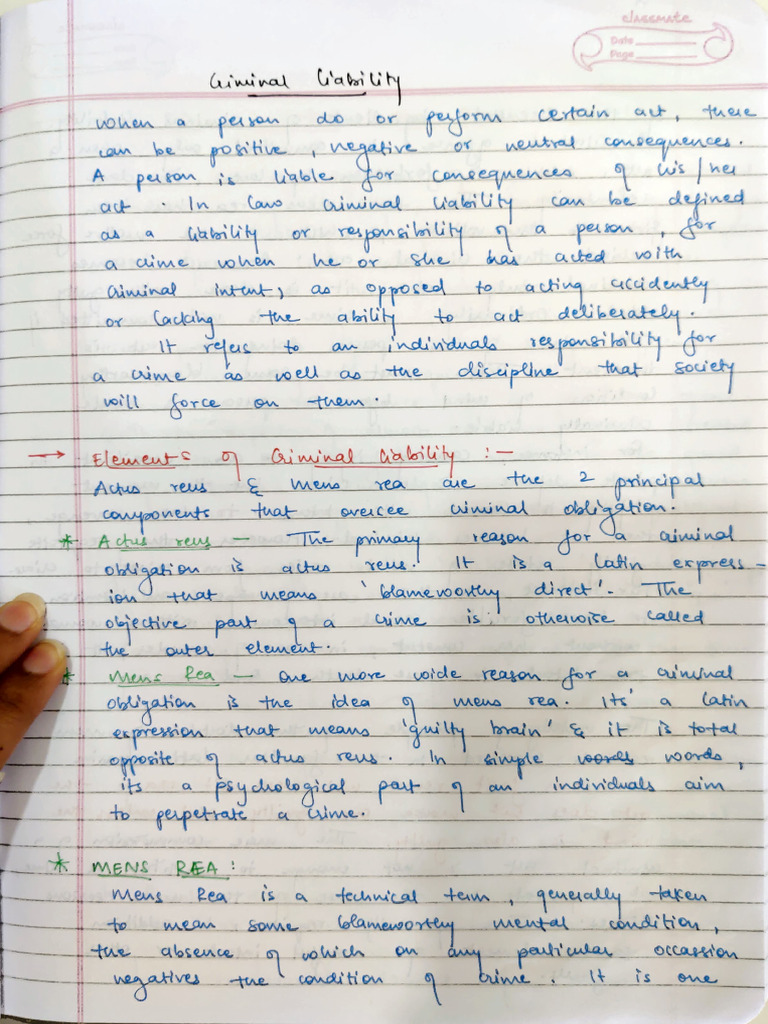 classmate
Date
Page
Criminal Liability
when a person do or perform certain act, there
can be positive, negative or neutral consequences.
A person is liable for consequences of his/her
act. In law criminal liability can be defined
as a liability or responsibility of a person, for
a crime when he or she has acted with
criminal intent, as opposed to acting accidently
or lacking the ability to act deliberately.
It refers to an individuals responsibility for
a crime as well as the discipline that society
will force on them.
→ Elements of Criminal Liability :-
Actus reus & mens rea are the 2 principal
components that oversee criminal obligation.
* Actus reus - The primary reason for a criminal
obligation is actus reus. It is a latin express-
ion that means 'blameworthy direct'. The
objective part of a crime is otherwise called
the outer element.
* Mens Rea - One more wide reason for a criminal
obligation is the idea of mens rea. Its' a latin
expression that means 'guilty brain' & it is total
opposite of actus reus. In simple words words,
its a psychological part of an individuals aim
to perpetrate a crime.
* MENS REA :
Mens Rea is a technical term, generally taken
to mean some blameworthy mental condition,
the absence of which on any particular occassion
negatives the condition of crime. It is one